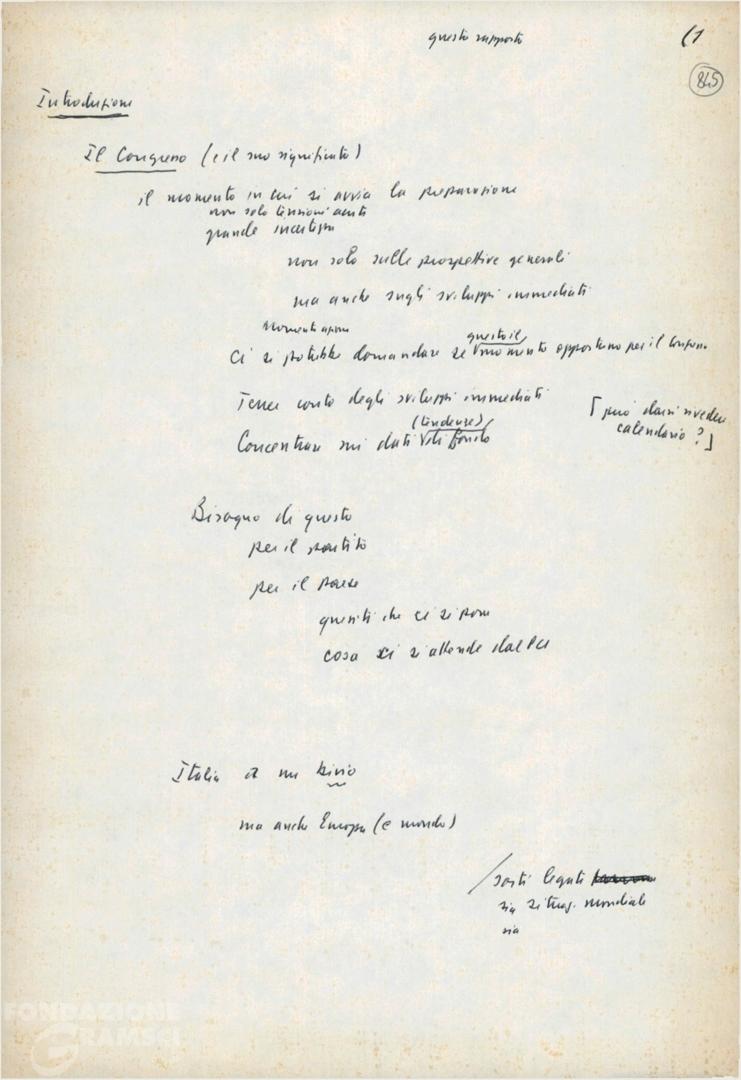 questo rapporto
(1
845
Introduzione
Il Congresso (e il suo significato)
il momento in cui si avvia la preparazione
non solo tensioni acute
grande incertezza
non solo sulle prospettive generali
ma anche sugli sviluppi immediati
Momenti
Ci si potrebbe domandare se questo il momento opportuno per il Congresso
Tener conto degli sviluppi immediati
[può darsi rivedere
calendario?]
Concentrare sui dati (tendenze) di fondo
Bisogno di questo
per il partito
per il paese
quesiti che ci si pone
cosa ci si attende dal PCI
Italia a un bivio
ma anche Europa (e mondo)
sorti legate
sia situaz. mondiale
sia
FONDAZIONE
GRAMSCI